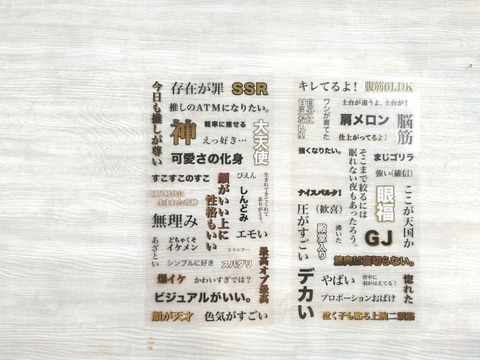 今日も推しが尊い
存在が罪
SSR
推しのATMになりたい。
神
軽率に推せる
えっ好き…
大天使
可愛さの化身
すこすこのすこ
顔がいい上に性格もいい
ぴえん
しんどみ
生まれてきてくれてありがとう。
無理み
エモい
あざとい
どちゃくそイケメン
シンプルに好き
スパダリ
最高オブ最高
爆イケ
かわいすぎでは？
ビジュアルがいい。
顔が天才
色気がすごい
キレてるよ！
腹筋6LDK
ワシが育てた
土台が違うよ、土台が！
肩メロン
脳筋
仕上がってるよ！
強くなりたい。
そこまで絞るには眠れない夜もあったろう。
まじゴリラ
強い（確信）
ナイスバルク！
圧がすごい
（歓喜）
殿堂入り
沸いた
眼福
ここが天国か
GJ
筋肉は裏切らない。
デカい
やばい
背中に羽がはえてる！
惚れた
プロポーションおばけ
泣く子も黙る上腕二頭筋